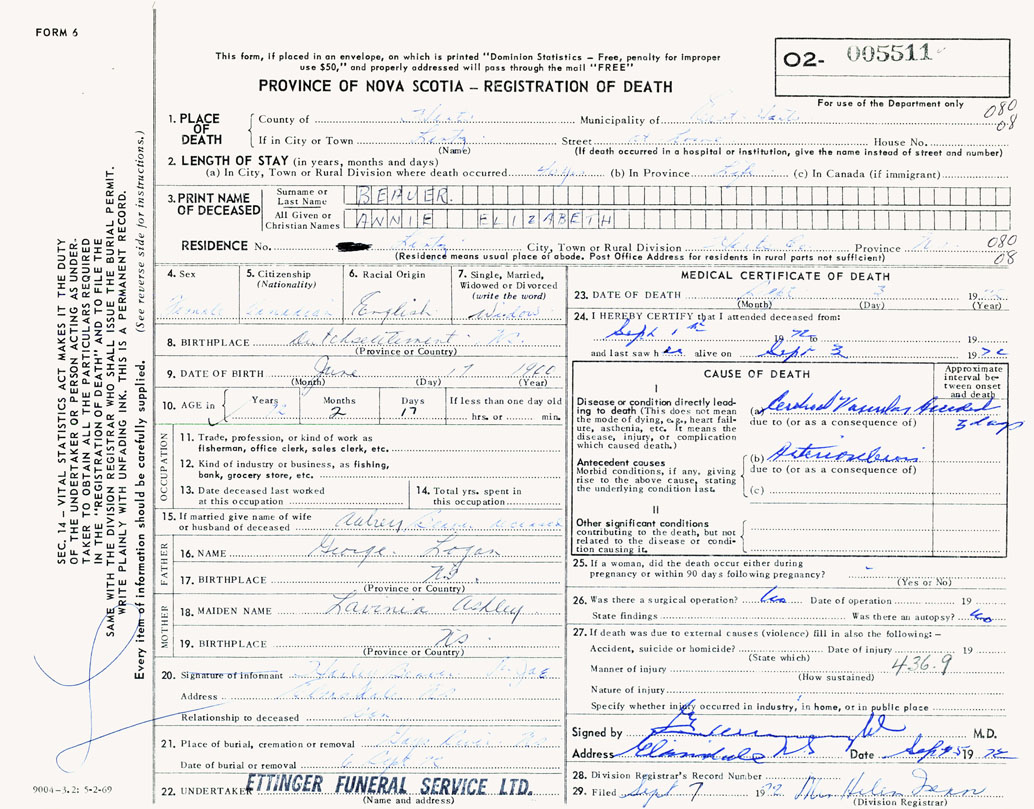 FORM 6
This form, if placed in an envelope, on which is printed "Dominion Statistics - Free, penalty for improper
use $50," and properly addressed will pass through the mail "FREE"
PROVINCE OF NOVA SCOTIA – REGISTRATION OF DEATH
O2- 005511
For use of the Department only
080
08
1. PLACE OF DEATH
County of Hants Municipality of East Hants
If in City or Town Lantz Street at Home House No.
(Name) (If death occurred in a hospital or institution, give the name instead of street and number)
2. LENGTH OF STAY (in years, months and days)
(a) In City, Town or Rural Division where death occurred (b) In Province Life (c) In Canada (if immigrant)
3. PRINT NAME OF DECEASED
Surname or Last Name BEAVER.
All Given or Christian Names ANNIE ELIZABETH
RESIDENCE No. Lantz City, Town or Rural Division Hants Co. Province N.S. 080
(Residence means usual place of abode. Post Office Address for residents in rural parts not sufficient) 08
4. Sex
Female
5. Citizenship
(Nationality)
Canadian
6. Racial Origin
English
7. Single, Married,
Widowed or Divorced
(write the word)
Widow
8. BIRTHPLACE N.S.
(Province or Country)
9. DATE OF BIRTH June 17 1900
(Month) (Day) (Year)
10. AGE in
Years 72
Months 2
Days 17
If less than one day old
hrs. or min.
OCCUPATION
11. Trade, profession, or kind of work as
fisherman, office clerk, sales clerk, etc.
12. Kind of industry or business, as fishing,
bank, grocery store, etc.
13. Date deceased last worked
at this occupation
14. Total yrs. spent in
this occupation
15. If married give name of wife
or husband of deceased Aubrey Beaver deceased
FATHER
16. NAME George Logan
17. BIRTHPLACE N.S.
(Province or Country)
MOTHER
18. MAIDEN NAME Lavinia Ashley
19. BIRTHPLACE N.S
(Province or Country)
20. Signature of informant Beaver
Address Elmsdale N.S
Relationship to deceased Son
21. Place of burial, cremation or removal
Date of burial or removal 6 Sept 72
22. UNDERTAKER ETTINGER FUNERAL SERVICE LTD.
(Name and address)
MEDICAL CERTIFICATE OF DEATH
23. DATE OF DEATH Sept 3 1972
(Month) (Day) (Year)
24. I HEREBY CERTIFY that I attended deceased from:
Sept 1st 1972 to
and last saw her alive on Sept 3 1972
CAUSE OF DEATH
Approximate
interval be-
tween onset
and death
I
Disease or condition directly lead-
ing to death (This does not mean
the mode of dying, e.g., heart fail-
ure, asthenia, etc. It means the
disease, injury, or complication
which caused death.)
(a) Cerebral Vascular Accident
due to (or as a consequence of) 3 days
Antecedent causes
Morbid conditions, if any, giving
rise to the above cause, stating
the underlying condition last.
(b) Arteriosclerosis
due to (or as a consequence of)
(c)
II
Other significant conditions
contributing to the death, but not
related to the disease or condi-
tion causing it.
25. If a woman, did the death occur either during
pregnancy or within 90 days following pregnancy? -
(Yes or No)
26. Was there a surgical operation? No Date of operation 19
State findings Was there an autopsy? No
27. If death was due to external causes (violence) fill in also the following: –
Accident, suicide or homicide? Date of injury 19
(State which)
Manner of injury 436.9
(How sustained)
Nature of injury
Specify whether injury occurred in industry, in home, or in public place
Signed by M.D.
Address Elmsdale N S Date Sept 5 1972
28. Division Registrar's Record Number
29. Filed Sept 7 1972 Mrs Helen
(Division Registrar)
SEC. 14 – VITAL STATISTICS ACT MAKES IT THE DUTY
OF THE UNDERTAKER OR PERSON ACTING AS UNDER-
TAKER TO OBTAIN ALL THE PARTICULARS REQUIRED
IN THE "REGISTRATION OF DEATH" AND FILE THE
SAME WITH THE DIVISION REGISTRAR WHO SHALL ISSUE THE BURIAL PERMIT.
WRITE PLAINLY WITH UNFADING INK. THIS IS A PERMANENT RECORD.
Every item of information should be carefully supplied. (See reverse side for instructions.)
9004-3.2: 5-2-69